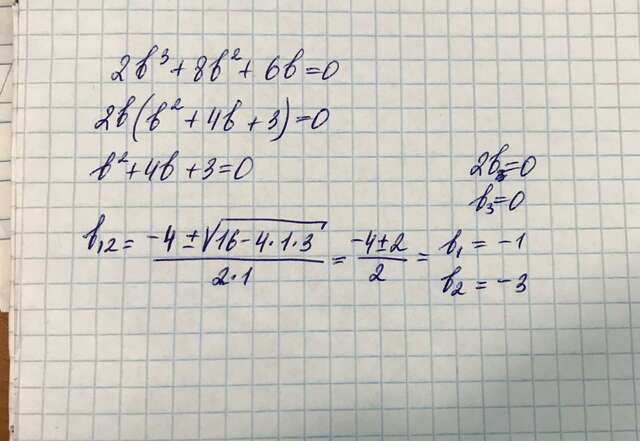 2b³ + 8b² + 6b = 0
2b(b² + 4b + 3) = 0
b² + 4b + 3 = 0
2b₃ = 0
b₃ = 0
b₁,₂ = (-4 ± √(16 - 4·1·3))/(2·1) = (-4 ± 2)/2 = b₁ = -1
b₂ = -3